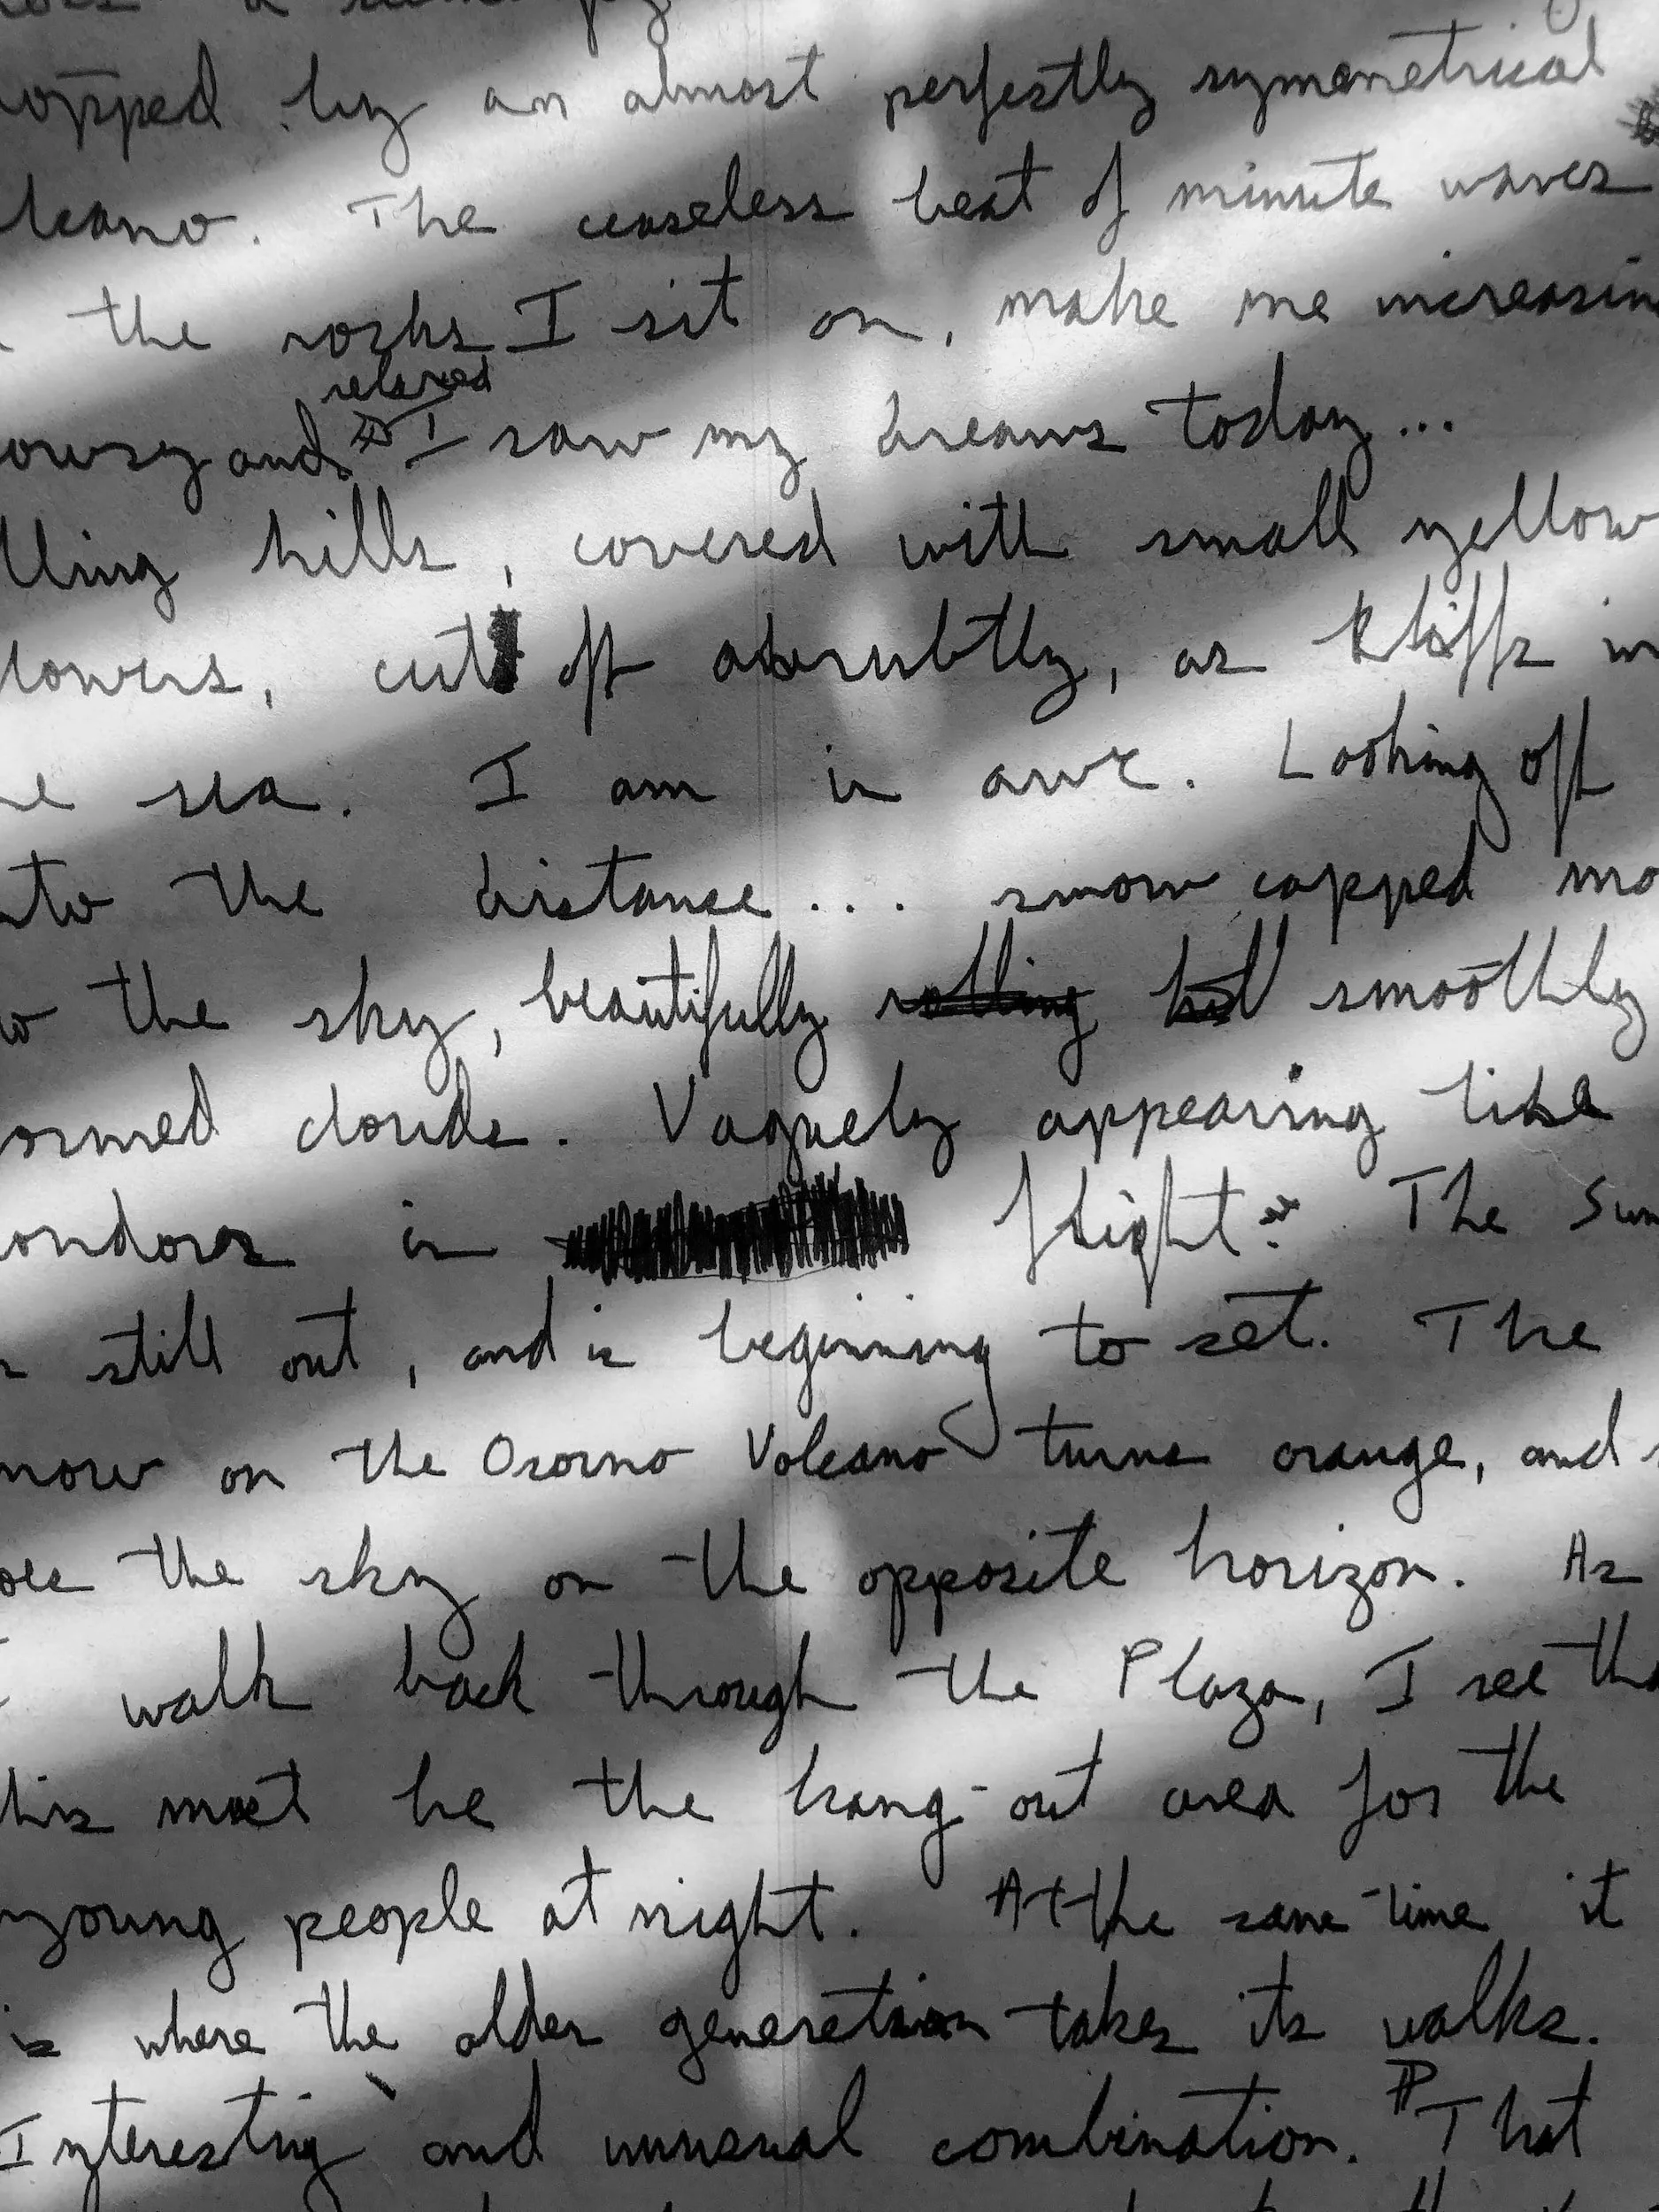 opped by an almost perfectly symmetrical
lcano. The ceaseless beat of minute waves
the rocks I sit on, make me increasin
relaxed
owsy and ¶ I saw my dreams today...
lling hills, covered with small yellow
lowers, cut off abrubtly, as kliffs in
e sea. I am in awe. Looking off
nto the distance... snow capped mo
o the sky, beautifully rolling hil smoothly
ormed clouds. Vaguely appearing like
ondors in flight. The Sun
still out, and is beginning to set. The
now on the Osorno Volcano turns orange, and
oes the sky on the opposite horizon. As
I walk back through the Plaza, I see tha
his must be the hang-out area for the
young people at night. At the same time it
is where the older generation takes its walks.
Interesting and unusual combination. ¶ That